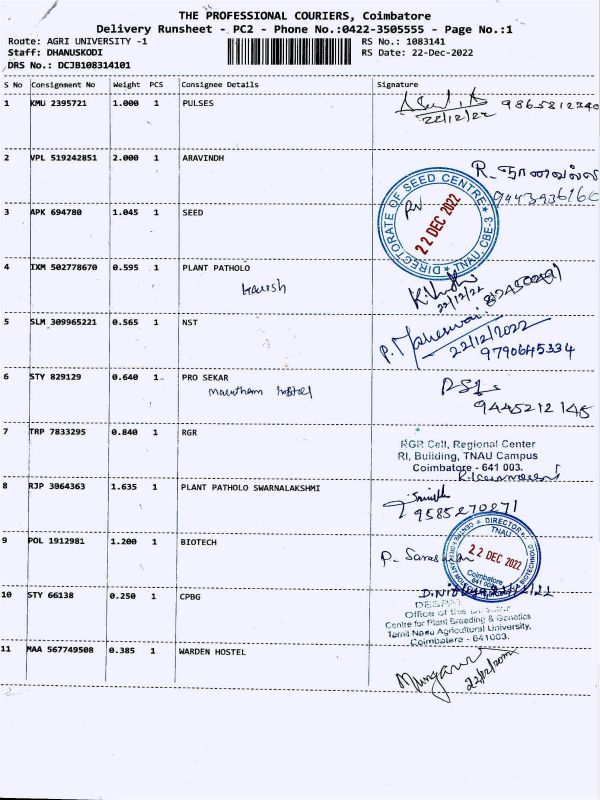 THE PROFESSIONAL COURIERS, Coimbatore
Delivery Runsheet - PC2 - Phone No.:0422-3505555 - Page No.:1
Route: AGRI UNIVERSITY -1
Staff: DHANUSKODI
DRS No.: DCJB108314101
RS No.: 1083141
RS Date: 22-Dec-2022
S No Consignment No Weight PCS Consignee Details Signature
1 KMU 2395721 1.000 1 PULSES
22/12/22
2 VPL 519242851 2.000 1 ARAVINDH
3 APK 694780 1.045 1 SEED
DIRECTORATE OF SEED CENTRE
22 DEC 2022
TNAU, CBE-3
4 IXM 502778670 0.595 1 PLANT PATHOLO
22/12/22
5 SLM 309965221 0.565 1 NST
P. Maheswari
22/12/2022
9790645334
6 STY 829129 0.640 1 PRO SEKAR
hostel
9445212145
7 TRP 7833295 0.840 1 RGR
RGR Cell, Regional Center
RI, Building, TNAU Campus
Coimbatore - 641 003.
8 RJP 3064363 1.635 1 PLANT PATHOLO SWARNALAKSHMI
9585270271
9 POL 1912981 1.200 1 BIOTECH
DIRECTOR
TNAU
22 DEC 2022
Coimbatore
10 STY 66138 0.250 1 CPBG
Office of the Director
Centre for Plant Breeding & Genetics
Tamil Nadu Agricultural University,
Coimbatore - 641003.
11 MAA 567749508 0.385 1 WARDEN HOSTEL
22/12/2022